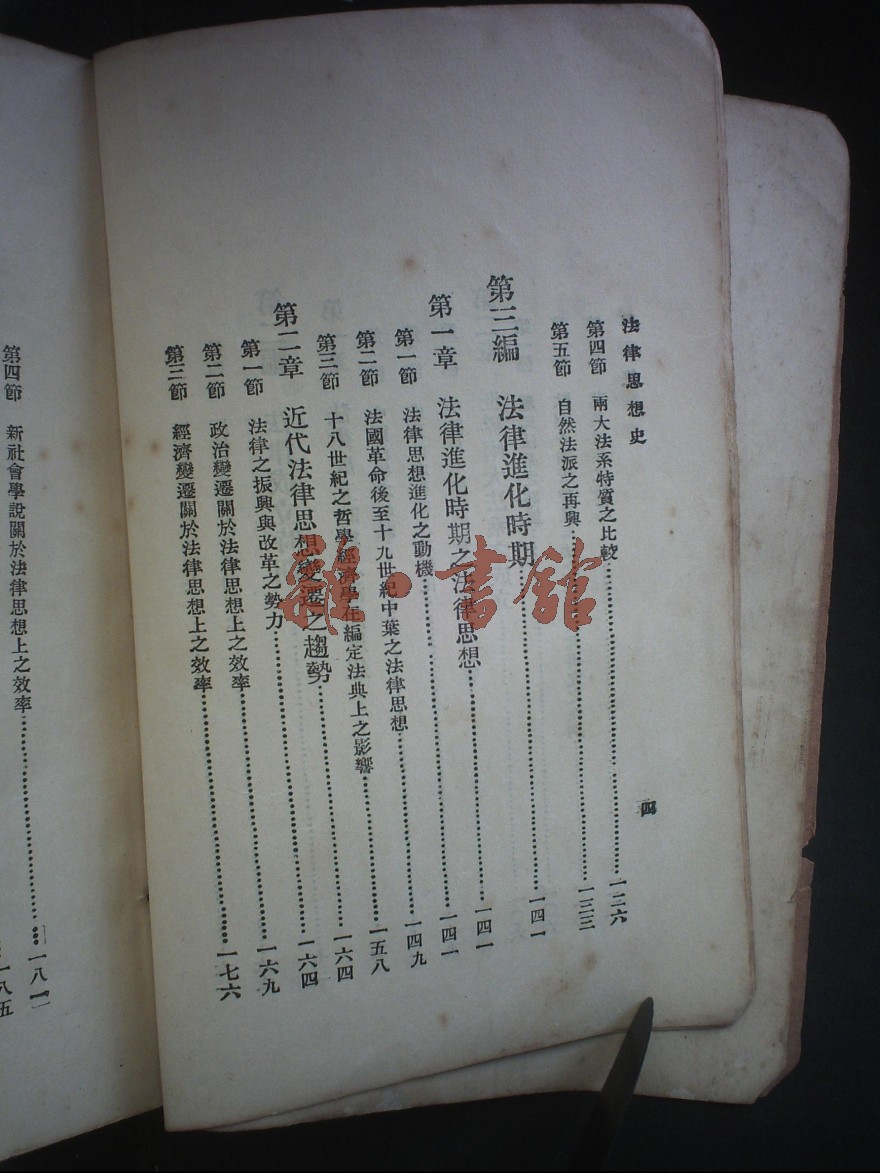 法律思想史
四
第四節 兩大法系特質之比較……一二六
第五節 自然法派之再興……一三三
第三編 法律進化時期……一四一
第一章 法律進化時期之法律思想……一四一
第一節 法律思想進化之動機……一四一
第二節 法國革命後至十九世紀中葉之法律思想……一四九
第三節 十八世紀之哲學經濟學在編定法典上之影響……一五八
第二章 近代法律思想變遷之趨勢……一六四
第一節 法律之振興與改革之勢力……一六四
第二節 政治變遷關於法律思想上之效率……一六九
第三節 經濟變遷關於法律思想上之效率……一七六
第四節 新社會學說關於法律思想上之效率……一八
一八五
雜·書館